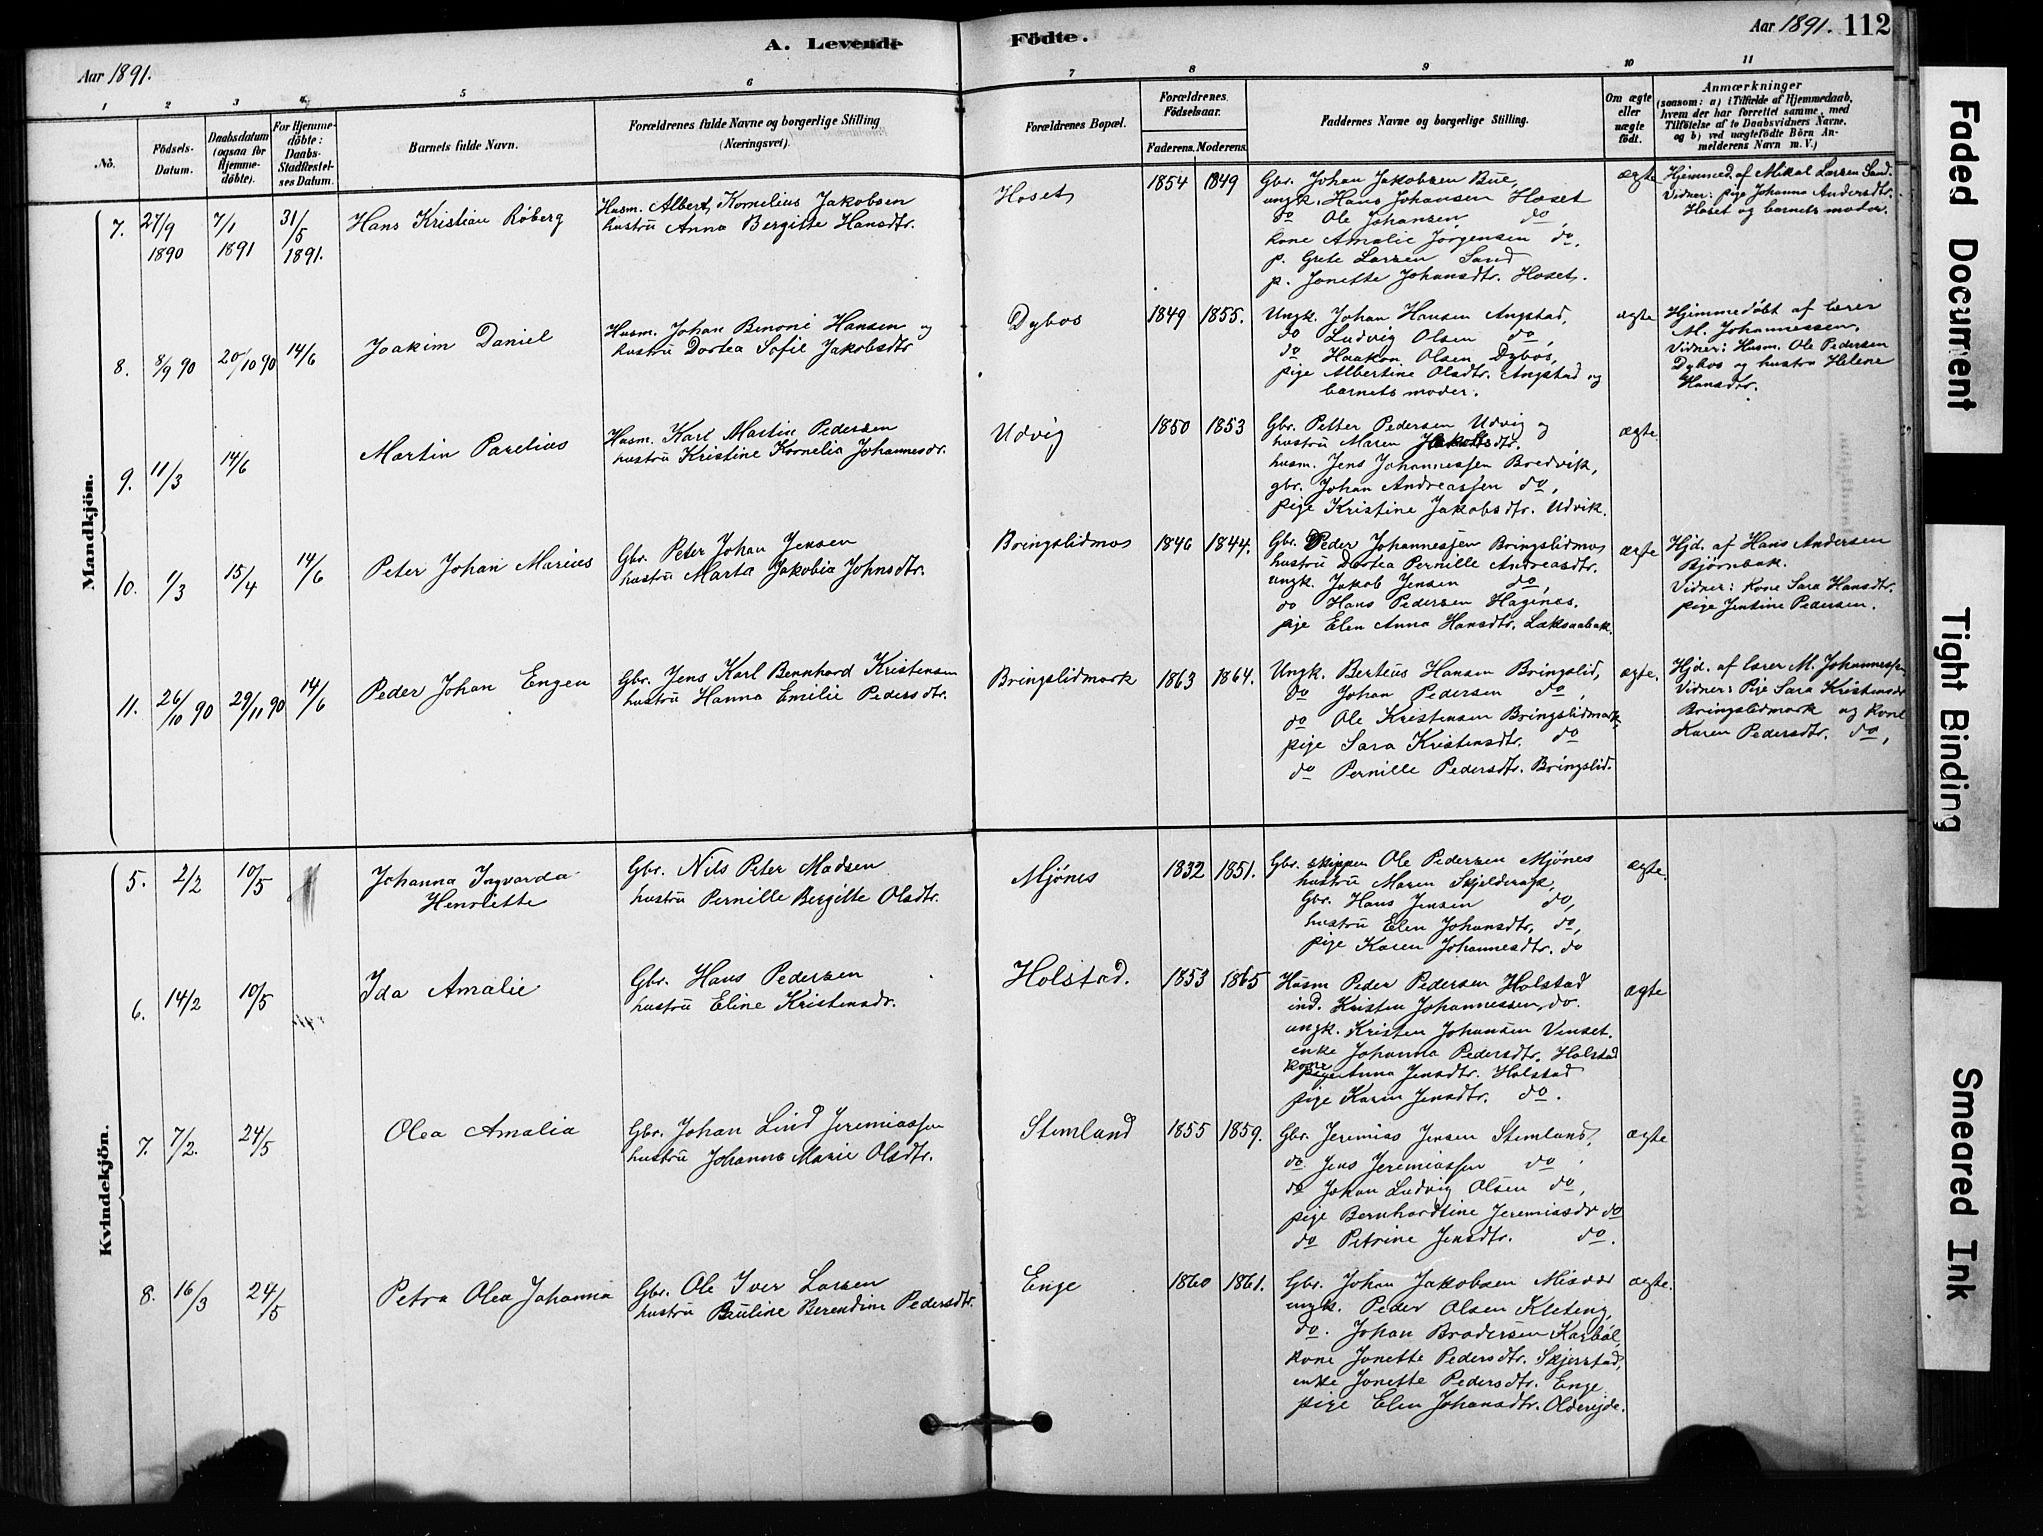 A. Levende Födte.
Aar 1891.
Aar 1891. 112
1 2 3 4 5 6 7 8 9 10 11
No.
Födsels-Datum.
Daabsdatum (ogsaa for Hjemme-döbte).
For Hjemme-döbte: Daabs-Stadfæstel-ses Datum.
Barnets fulde Navn.
Forældrenes fulde Navne og borgerlige Stilling (Næringsvei).
Forældrenes Bopæl.
Forældrenes Födselsaar.
Faderens. Moderens.
Faddernes Navne og borgerlige Stilling.
Om ægte eller uægte födt.
Anmærkninger
(saasom: a) i Tilfælde af Hjemmedaab, hvem der har forrettet samme, med Tilföielse af to Daabsvidners Navne, og b) ved uægtefödte Börn An-melderens Navn m. V.)
Mandkjön.
7. 27/9 1890 7/1 1891 31/5 1891.
Hans Kristian Röberg
Husm. Albert Kornelius Jakobsen
hustru Anna Bergitte Hansdtr.
Hoset
1854 1849
Gbr. Johan Jakobsen Bue,
ungk. Hans Johansen Hoset
do Ole Johansen do,
kone Amalie Jørgensen do,
p. Grete Larsen Sand
p. Jonette Johansdtr. Hoset.
ægte
Hjemmed. af Mikal Larsen Sand.
Vidner: pige Johanna Andersdtr.
Hoset og barnets moder.
8. 8/9 90 20/10 90 14/6
Joakim Daniel
Husm. Johan Benoni Hansen og
hustru Dortea Sofie Jakobsdtr
Dybos
1849 1855.
Ungk. Johan Hansen Angstad,
do Ludvig Olsen do,
do Haakon Olsen Dybos,
pige Albertine Olsdtr. Angstad og
barnets moder.
ægte
Hjemmedöbt af lærer
M. Johannessen.
Vidner: Husm. Ole Pedersen
Dybos og hustru Helene
Hansdtr.
9. 11/3 14/6
Martin Parelius
Husm. Karl Martin Pedersen
hustru Kristine Kornelia Johannesdr.
Udvig
1850 1853
Gbr. Petter Pedersen Udvig og
hustru Maren Jakobsdtr.
husm. Jens Johannessen Bredvik,
gbr. Johan Andreassen do,
pige Kristine Jakobsdtr. Udvik.
ægte
10. 1/3 15/4 14/6
Peter Johan Marius
Gbr. Peter Johan Jensen
hustru Marta Jakobia Johnsdtr.
Bringslidmo
1846 1844.
Gbr. Peder Johannessen Bringslidmo
hustru Dortea Pernille Andreasdtr.
ungk. Jakob Jensen do,
do Hans Pedersen Hagenes.
pige Elen Anna Hansdtr. Laksaabak.
ægte
Hjd. af Hans Andersen
Bjørnbak.
Vidner: Kone Sara Hansdtr.
pige Jentine Pedersen.
11. 26/10 90 29/11 90 14/6
Peder Johan Engen
Gbr. Jens Karl Bernhard Kristensen
hustru Hanna Emilie Pedersdtr.
Bringslidmark
1863 1864.
Ungk. Berteus Hansen Bringslid,
do Johan Pedersen do,
do Ole Kristensen Bringslidmark
pige Sara Kristensdtr. do
do Pernille Pedersdtr. Bringslid.
ægte.
Hjd. af lærer M. Johannessen
Vidner: Pige Sara Kristensdr
Bringslidmark og kone
Karen Pedersdtr. do,
Kvindekjön.
5. 2/2 10/5
Johanna Ingvarda
Henriette
Gbr. Nils Peter Madsen
hustru Pernille Bergitte Olsdtr.
Mjönes
1832 1851.
Gbr. skipper Ole Pedersen Mjönes
hustru Maren
Gbr. Hans Jensen do,
hustru Elen Johansdtr, do,
pige Karen Johannesdtr. do
ægte.
6. 14/2 10/5
Ida Amalie
Gbr. Hans Pedersen
hustru Eline Kristensdr.
Holstad.
1853 1865
Husm Peder Pedersen Holstad
ind. Kristen Johannessen, do.
ungk. Kristen Johansen Venset
enke Johanna Pedersdtr. Holstad
kone Anna Jensdtr. Holstad
pige Karen Jensdtr. do.
ægte
7. 7/2. 24/5
Olea Amalia
Gbr. Johan Lind Jeremiassen
hustru Johanna Marie Olsdtr.
Stemland
1855 1859.
Gbr. Jeremias Jensen Stemland,
do. Jens Jeremiassen do
do Johan Ludvig Olsen do,
pige Bernhardtine Jeremiasdr do
do Petrine Jensdtr. do.
ægte
8. 16/3 24/5
Petra Olea Johanna
Gbr. Ole Iver Larsen
hustru Beritine Berendine Pedersdtr.
Enge
1860 1861.
Gbr. Johan Jakobsen Misvær
ungk. Peder Olsen Kleteng,
do. Johan Brodersen Karbøl,
kone Jonette Pedersdtr. Skjerstad,
enke Jonette Pedersdtr. Enge
pige Elen Johansdtr. Oldereide.
ægte.
Faded Document
Tight Binding
Smeared Ink